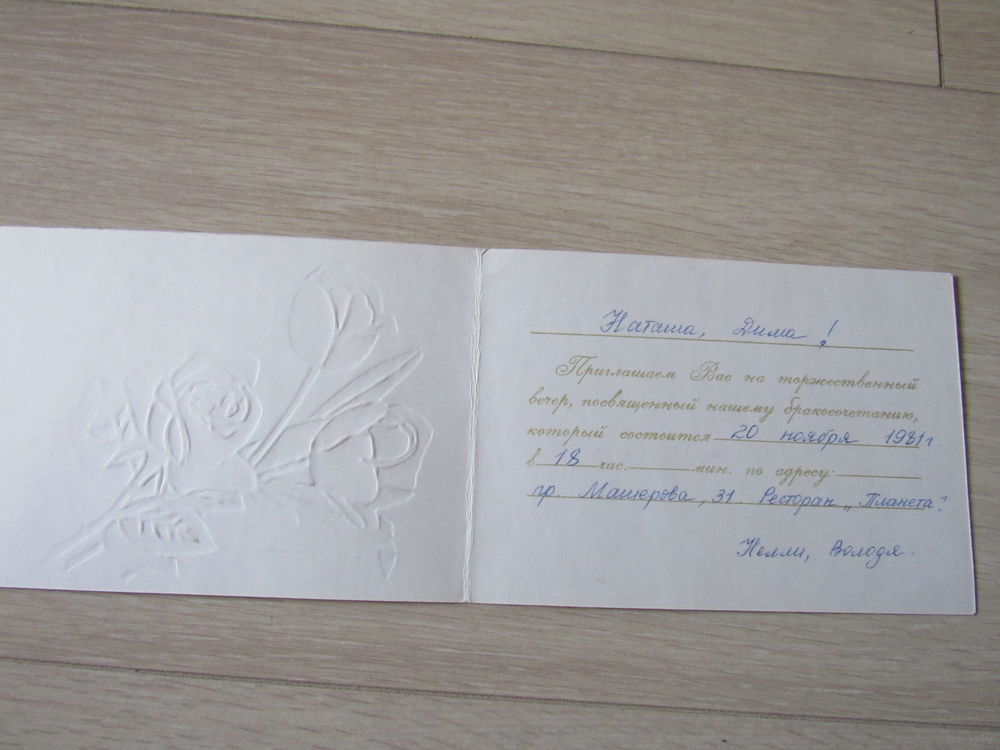 Наташа, Дима!
Приглашаем Вас на торжественный
вечер, посвященный нашему бракосочетанию,
который состоится 20 ноября 1981 г.
в 18 час. мин. по адресу:
пр. Машерова, 31 Ресторан „Планета".
Нелли, Володя.